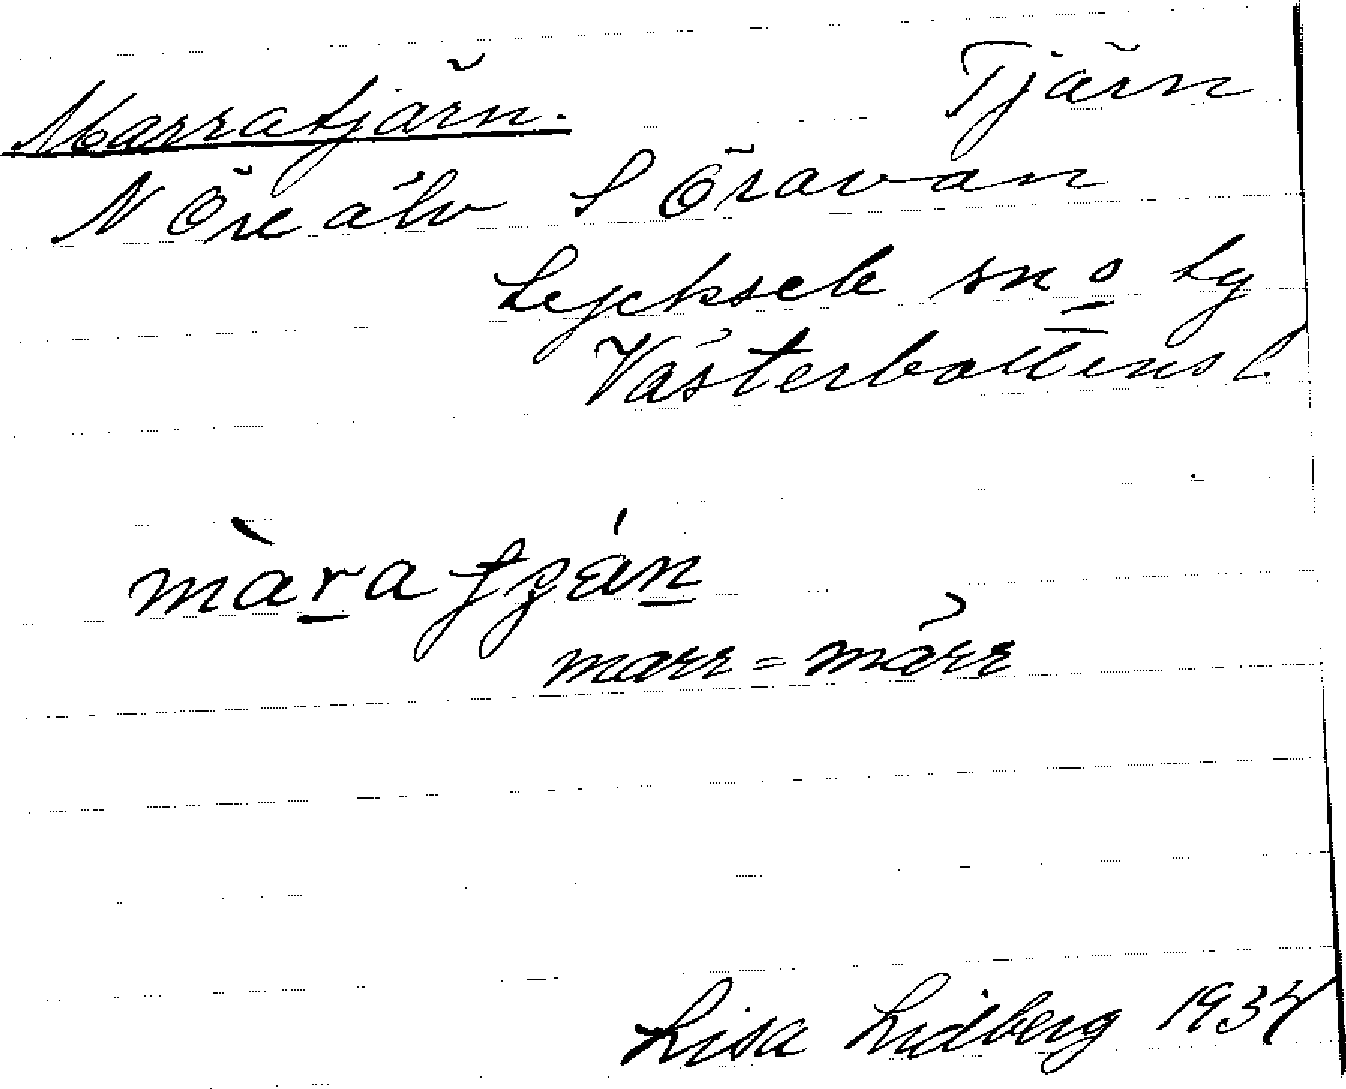 Marratjärn. Tjärn
N Öreälv S Öravan
Lycksele sn o Lg
Västerbottens l.
màra
marr = märr
Lisa Lidberg 1934